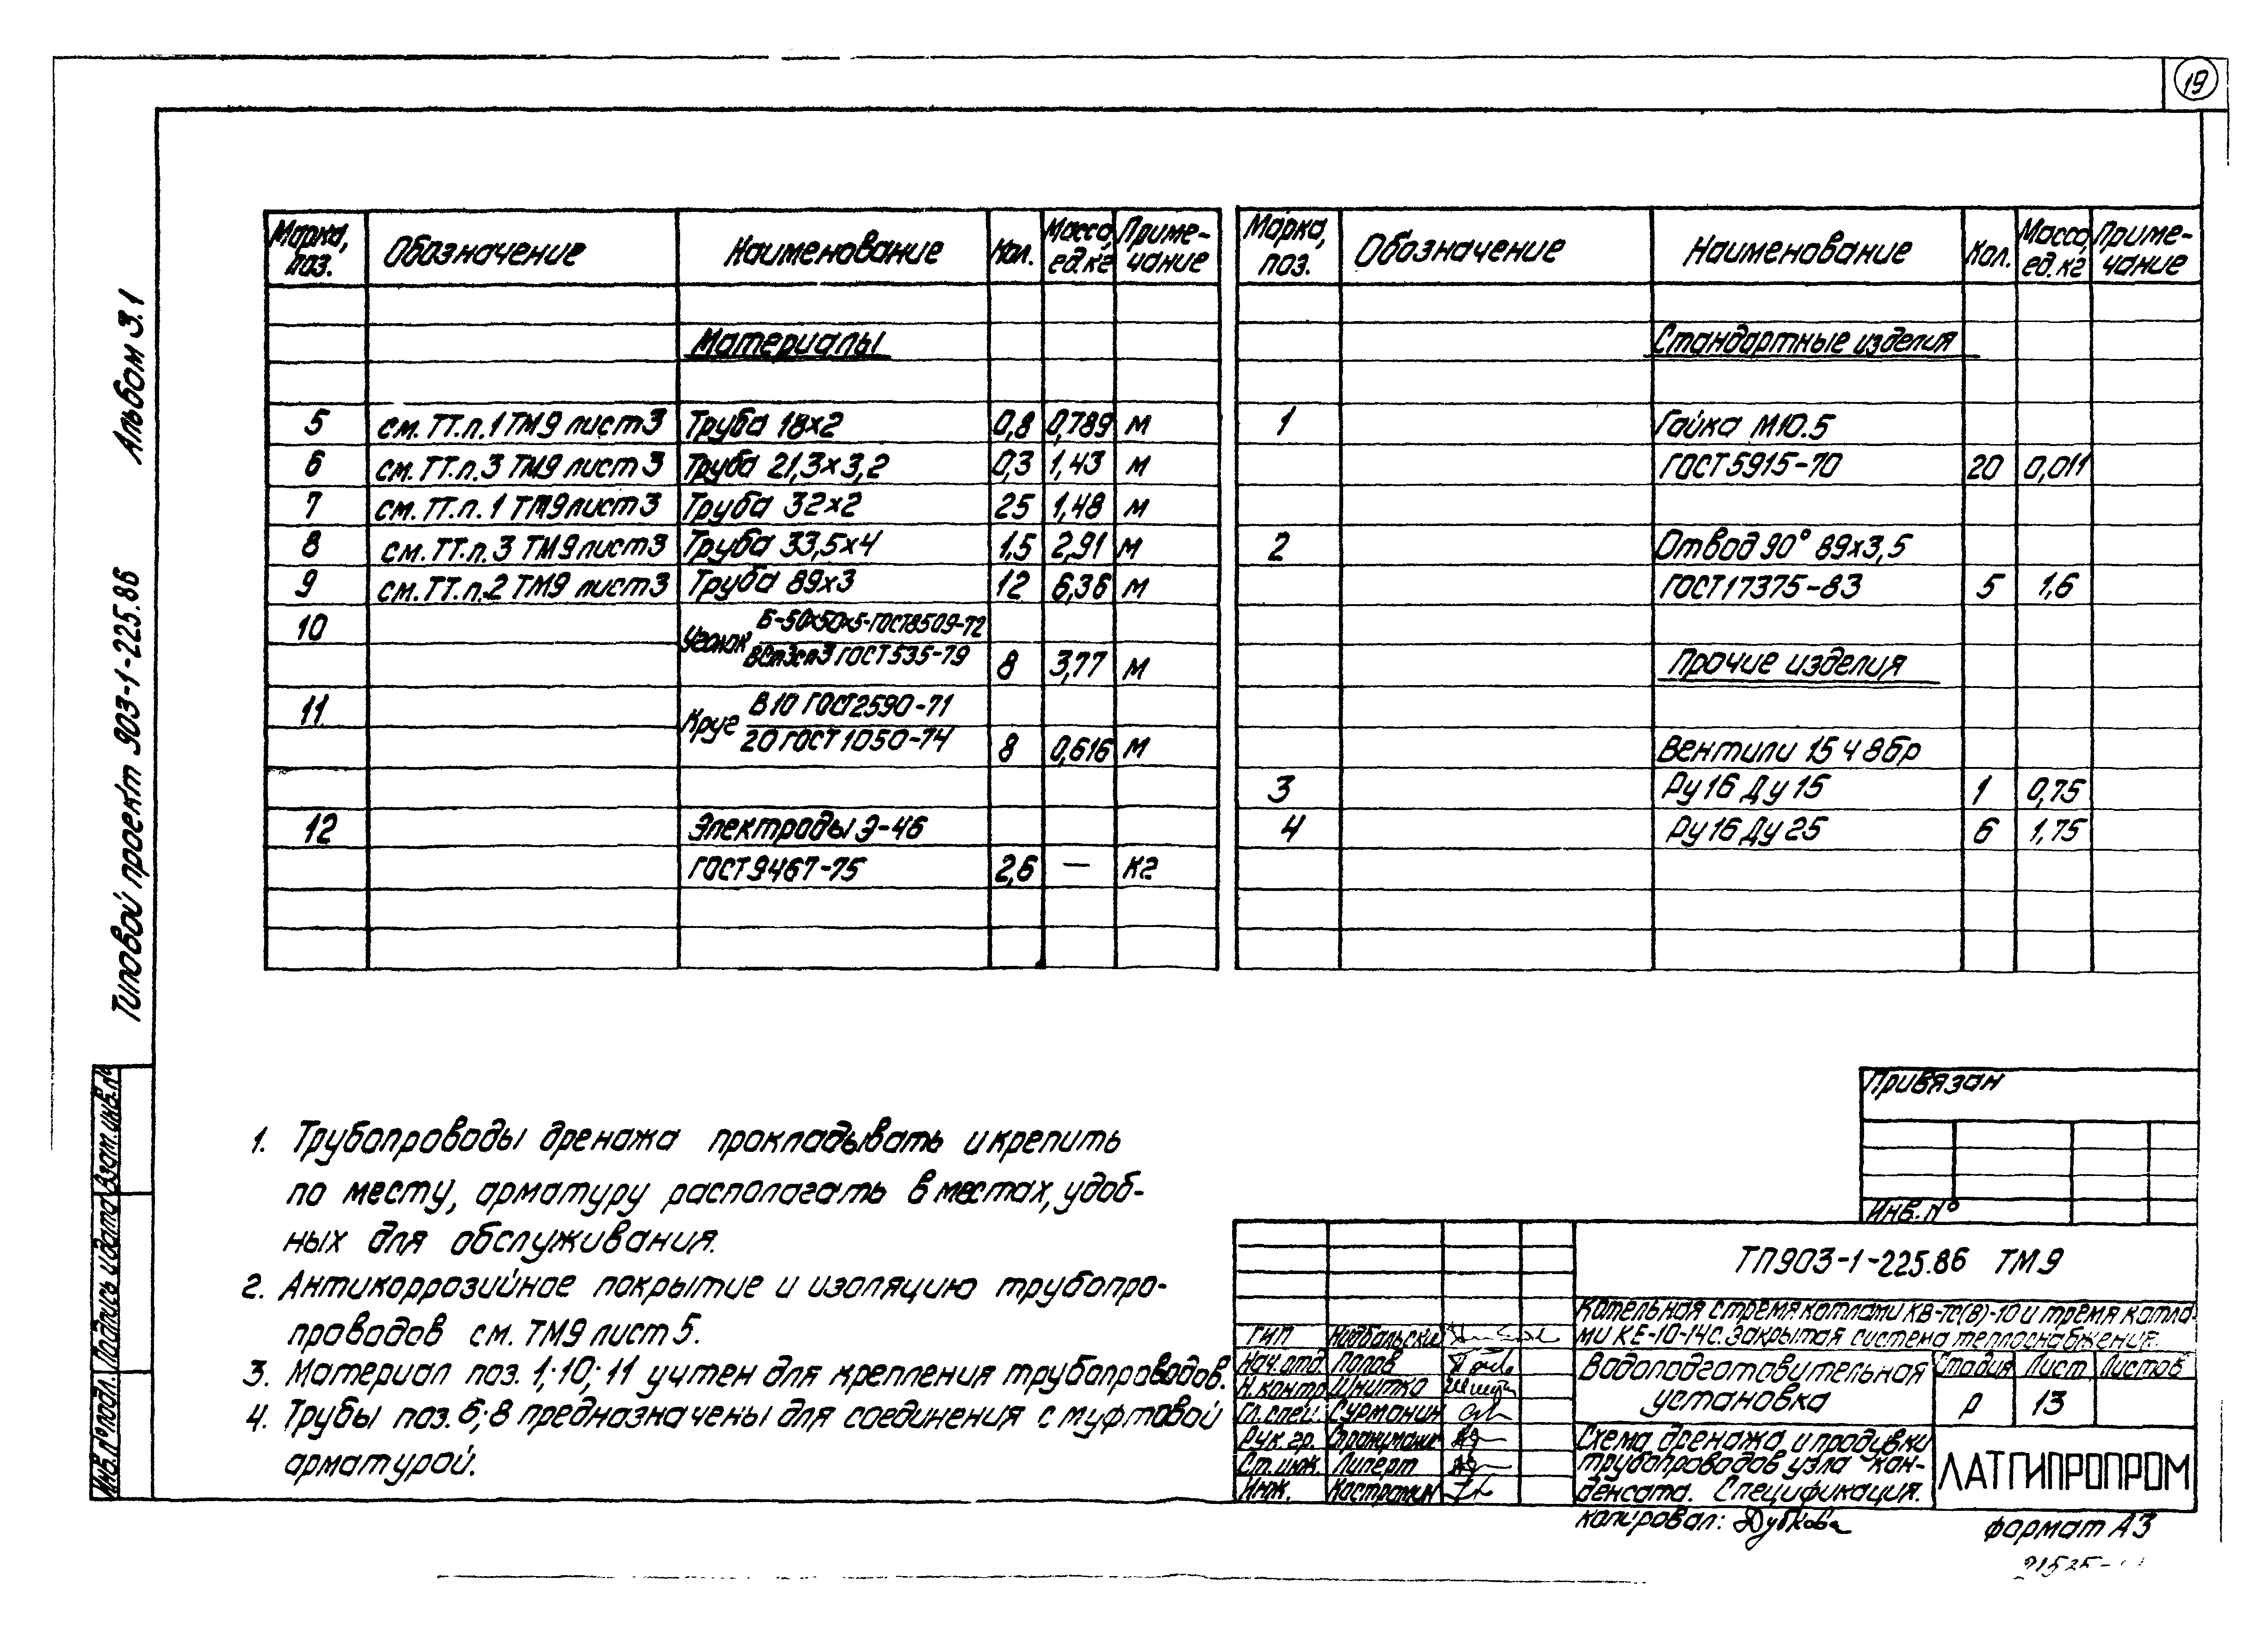 19
Альбом 3.1
Типовой проект 903-1-225.86
Марка, поз. Обозначение Наименование Кол. Масса, ед.кг Приме-чание
Материалы
5 см. ТТ.п.1 ТМ9 лист 3 Труба 18х2 0,8 0,789 м
6 см. ТТ.п.3 ТМ9 лист 3 Труба 21,3х3,2 0,3 1,43 м
7 см. ТТ.п.1 ТМ9 лист 3 Труба 32х2 25 1,48 м
8 см. ТТ.п.3 ТМ9 лист 3 Труба 33,5х4 1,5 2,91 м
9 см. ТТ.п.2 ТМ9 лист 3 Труба 89х3 12 6,36 м
10 Уголок Б-50х50х5-ГОСТ8509-72
ВСт3сп3 ГОСТ 535-79 8 3,77 м
11 Круг В10 ГОСТ2590-71
20 ГОСТ 1050-74 8 0,616 м
12 Электроды Э-46
ГОСТ 9467-75 2,6 — кг
Марка, поз. Обозначение Наименование Кол. Масса, ед.кг Приме-чание
Стандартные изделия
1 Гайка М10.5
ГОСТ 5915-70 20 0,011
2 Отвод 90° 89х3,5
ГОСТ 17375-83 5 1,6
Прочие изделия
Вентили 15 ч 8бр
3 Ру 16 Ду 15 1 0,75
4 Ру 16 Ду 25 6 1,75
1. Трубопроводы дренажа прокладывать и крепить
по месту, арматуру располагать в местах, удоб-
ных для обслуживания.
2. Антикоррозийное покрытие и изоляцию трубопро-
проводов см. ТМ9 лист 5.
3. Материал поз. 1; 10; 11 учтен для крепления трубопроводов.
4. Трубы поз. 6; 8 предназначены для соединения с муфтовой
арматурой.
Взам. инв. №
Подпись и дата
Инв. № подл.
Привязан
Инв. №
ТП903-1-225.86 ТМ9
Котельная с тремя котлами КВ-ТС(В)-10 и тремя котла-
ми КЕ-10-14с. Закрытая система теплоснабжения.
ГИП
Нач. отд. Попов
Н. контр. Шнитко
Гл. спец. Сурманин
Рук. гр.
Ст. инж. Липерт
Инж. Костромин
Водоподготовительная
установка
Стадия Лист Листов
Р 13
Схема дренажа и продувки
трубопроводов узла кон-
денсата. Спецификация.
ЛАТГИПРОПРОМ
копировал: Дубкова
формат А3